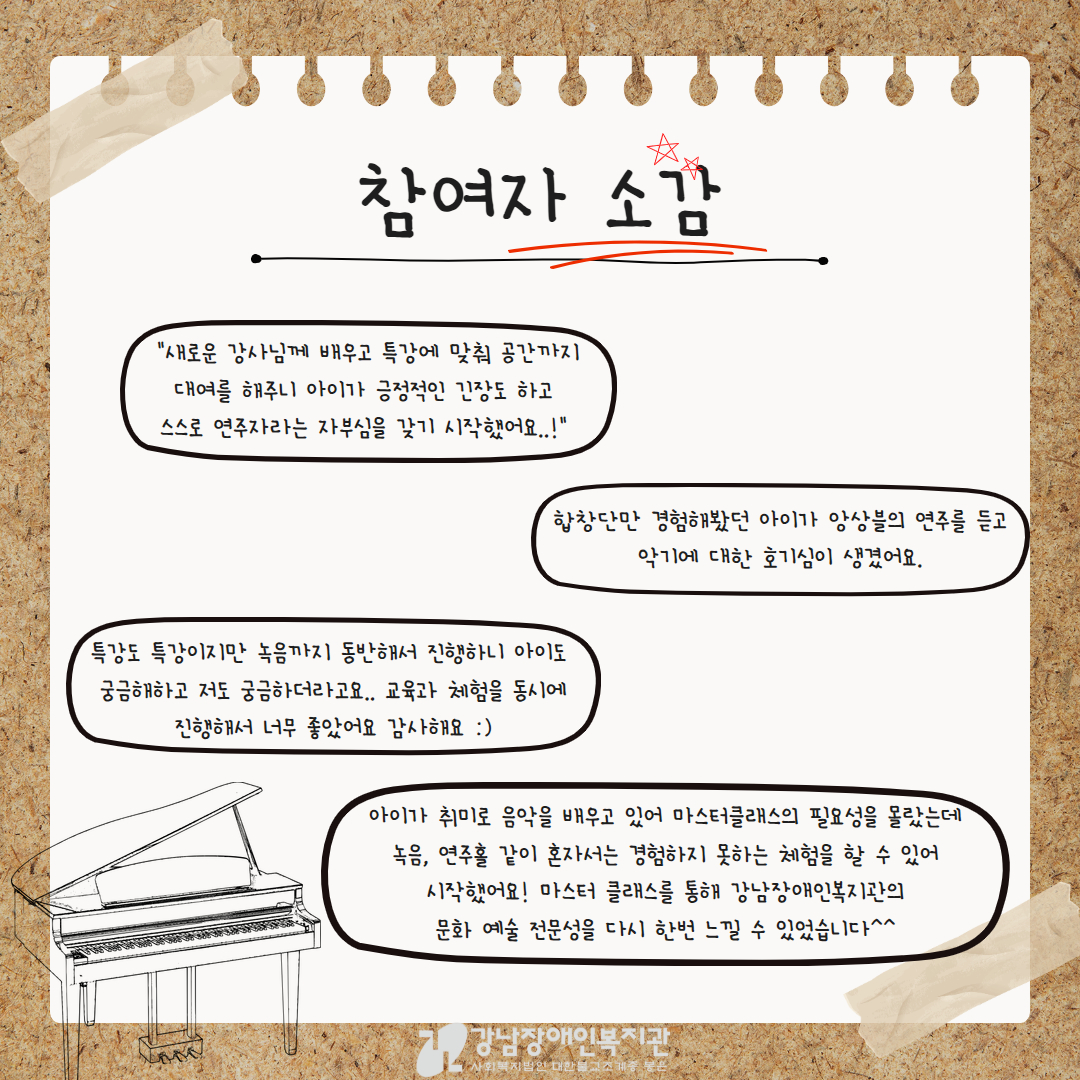 참여자 소감
"새로운 강사님께 배우고 특강에 맞춰 공간까지
대여를 해주니 아이가 긍정적인 긴장도 하고
스스로 연주자라는 자부심을 갖기 시작했어요..!"
합창단만 경험해봤던 아이가 앙상블의 연주를 듣고
악기에 대한 호기심이 생겼어요.
특강도 특강이지만 녹음까지 동반해서 진행하니 아이도
궁금해하고 저도 궁금하더라고요.. 교육과 체험을 동시에
진행해서 너무 좋았어요 감사해요 :)
아이가 취미로 음악을 배우고 있어 마스터클래스의 필요성을 몰랐는데
녹음, 연주홀 같이 혼자서는 경험하지 못하는 체험을 할 수 있어
시작했어요! 마스터 클래스를 통해 강남장애인복지관의
문화 예술 전문성을 다시 한번 느낄 수 있었습니다^^
강남장애인복지관
사회복지법인 대한불교조계종 봉은